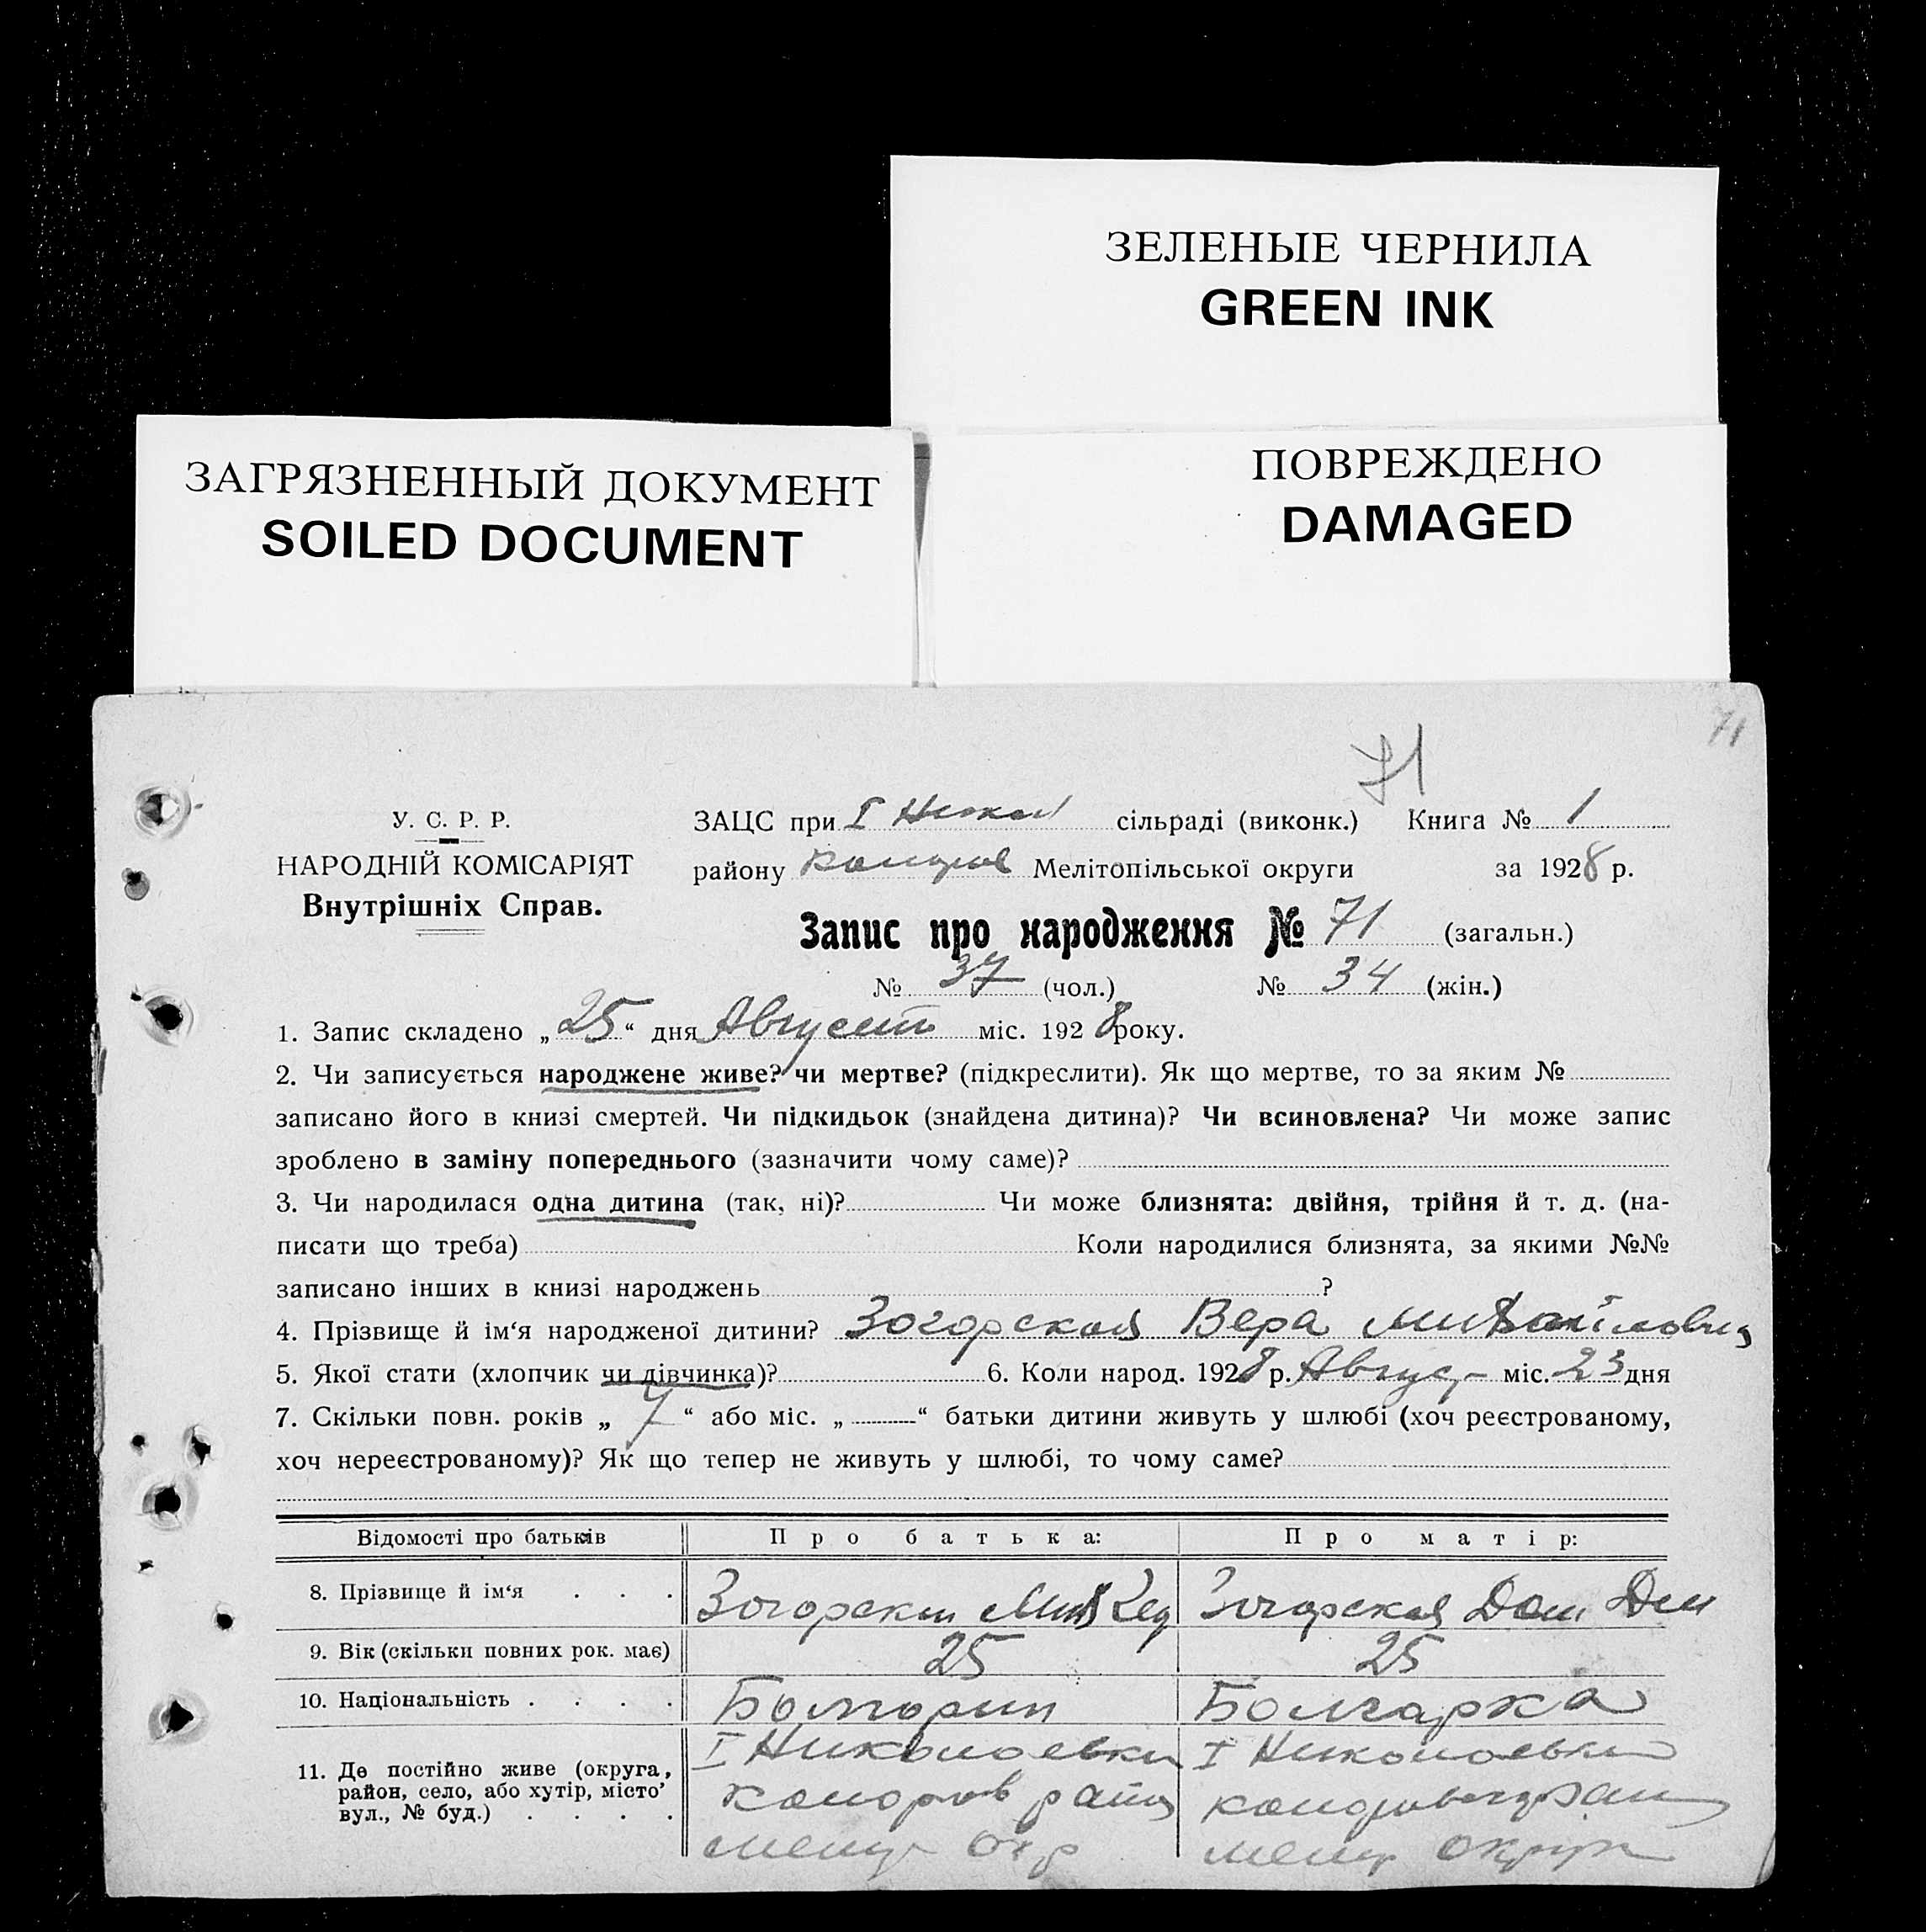 ЗЕЛЕНЫЕ ЧЕРНИЛА
GREEN INK
ЗАГРЯЗНЕННЫЙ ДОКУМЕНТ
SOILED DOCUMENT
ПОВРЕЖДЕНО
DAMAGED
71
71
У. С. Р. Р.
НАРОДНІЙ КОМІСАРІЯТ
Внутрішніх Справ.
ЗАЦС при I Никол сільраді (виконк.) Книга № 1
району Мелітопільської округи за 1928 р.
Запис про народження № 71 (загальн.)
№ 37 (чол.) № 34 (жін.)
1. Запис складено „ 25 “ дня Август міс. 1928 року.
2. Чи записується народжене живе? чи мертве? (підкреслити). Як що мертве, то за яким №
записано його в книзі смертей. Чи підкидьок (знайдена дитина)? Чи всиновлена? Чи може запис
зроблено в заміну попереднього (зазначити чому саме)?
3. Чи народилася одна дитина (так, ні)? Чи може близнята: двійня, трійня й т. д. (на-
писати що треба) Коли народилися близнята, за якими №№
записано інших в книзі народжень ?
4. Прізвище й ім‘я народженої дитини? Зогорская Вера
5. Якої стати (хлопчик чи дівчинка)? 6. Коли народ. 1928 р. Август міс. 23 дня
7. Скільки повн. років „ 7 “ або міс. „ “ батьки дитини живуть у шлюбі (хоч реєстрованому,
хоч нереєстрованому)? Як що тепер не живуть у шлюбі, то чому саме?
Відомості про батьків Про батька: Про матір:
8. Прізвище й ім‘я . . . Зогорский Зогорская
9. Вік (скільки повних рок. має) 25 25
10. Національність . . . . Болгорин Болгарка
11. Де постійно живе (округа, район, село, або хутір, місто’ вул., № буд.) . . . .
I Николоевки I Николоевки
райо
окр округи